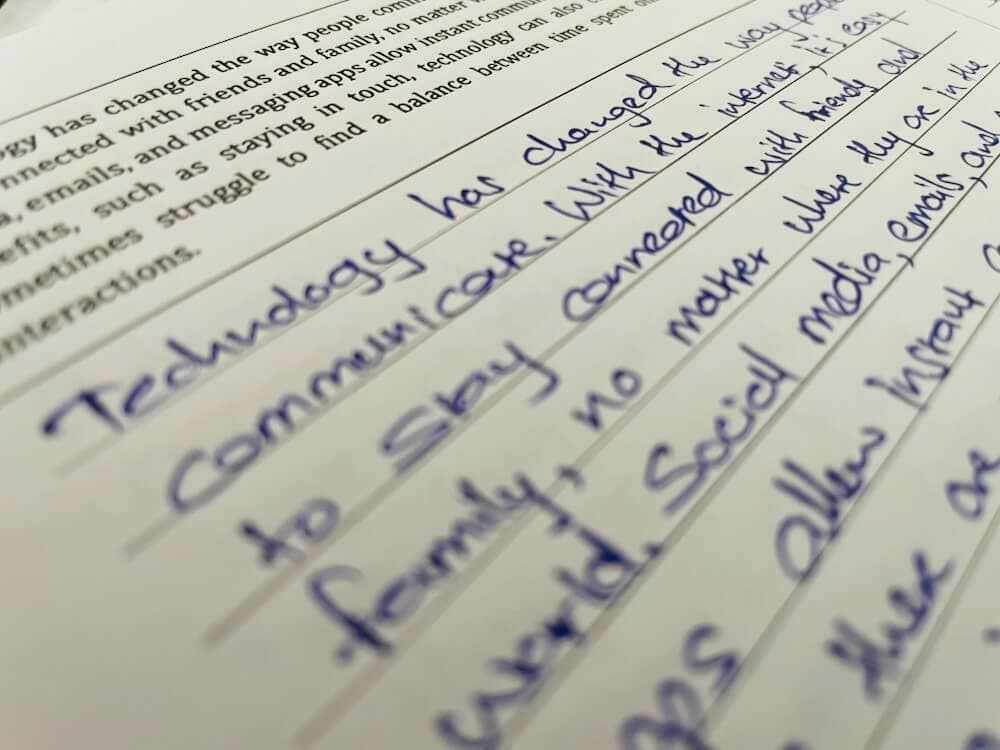 has changed the way people
with friends and family, no matter
emails, and messaging apps allow instant
such as staying in touch, technology can also
struggle to find a balance between time spent

Technology has changed the way people
communicate. With the internet, it's easy
to stay connected with friends and
family, no matter where they are in the
world. Social media, emails, and
allow instant
there are